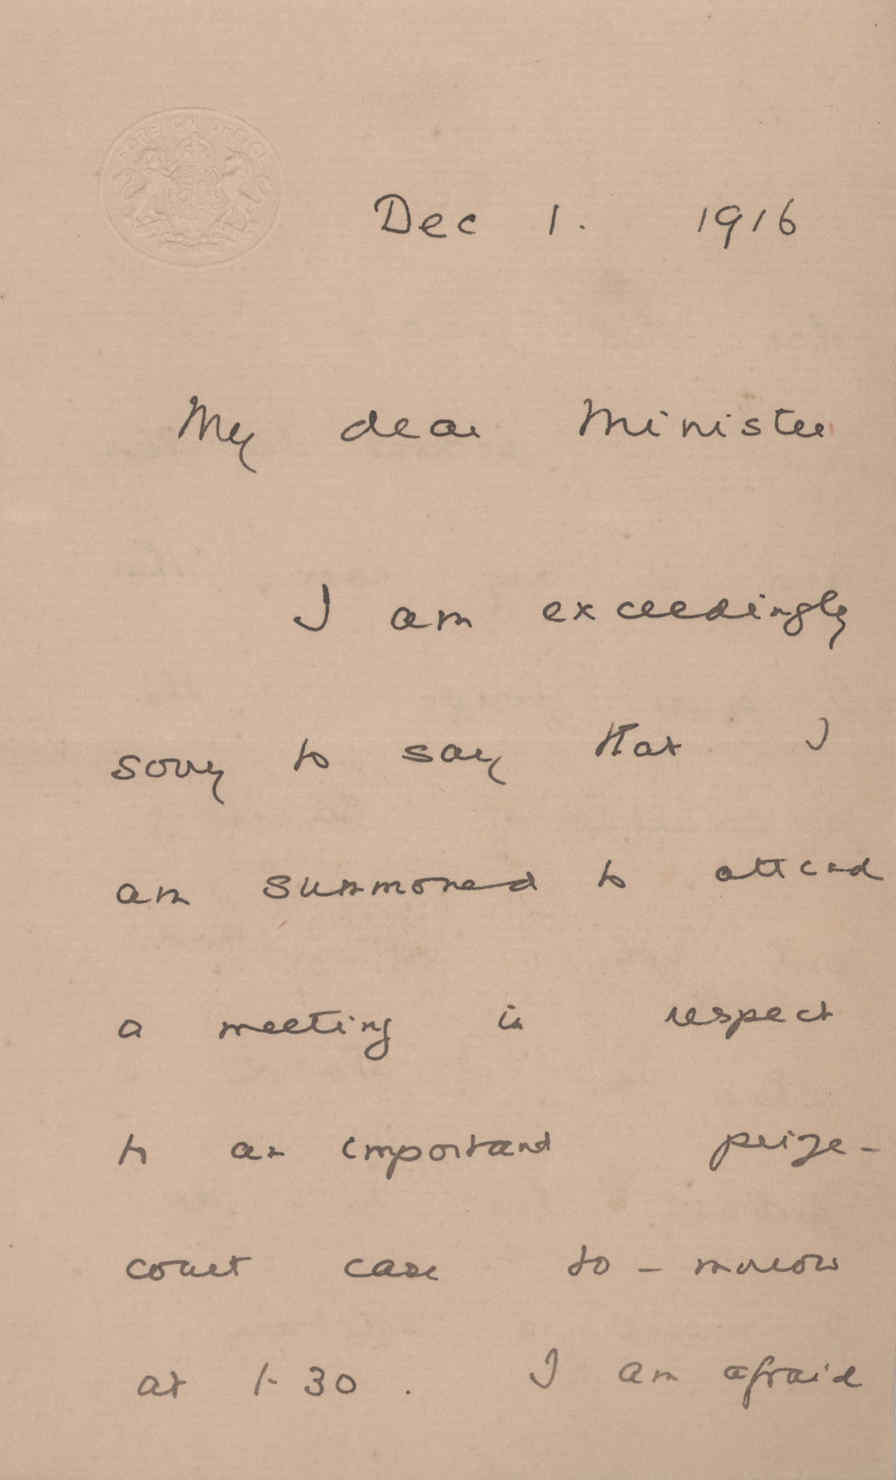 FOREIGN OFFICE
Dec 1. 1916
My dear Minister
I am exceedingly
sorry to say that I
am summoned to attend
a meeting in respect
to an important prize-
court case to-morrow
at 1-30. I am afraid